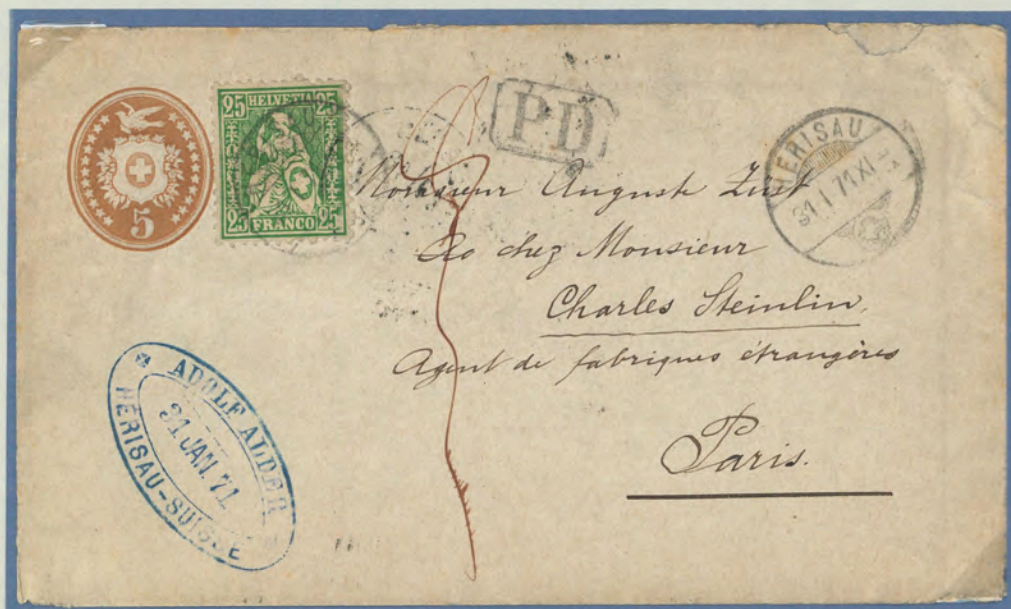 25 HELVETIA 25
25 FRANCO 25
5
P.D
HERISAU
31 I 71 XI
Monsieur Auguste Zust
chez Monsieur
Charles Steinlin,
Agent de fabriques étrangères
Paris.
ADOLF ALDER
31 JAN. 71
HERISAU-SUISSE